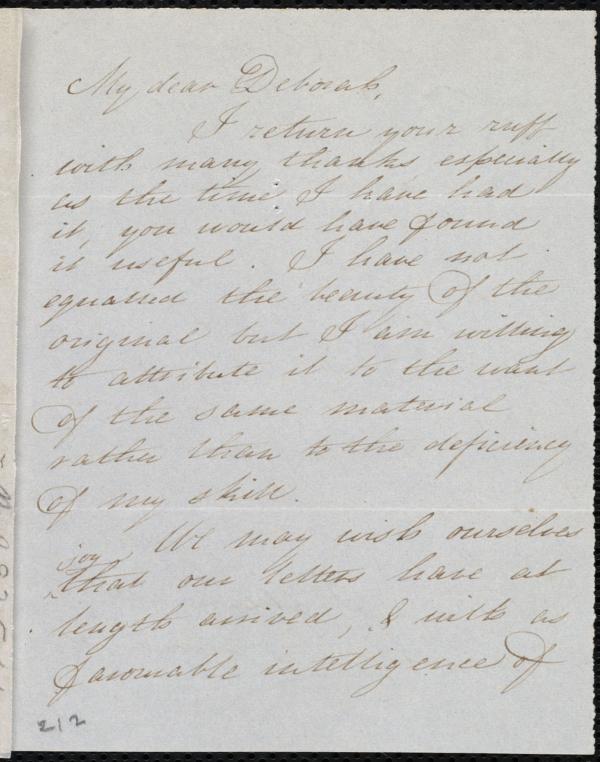 My dear Deborah,
I return your ruff
with many thanks especially
as the time I have had
it, you would have found
it useful. I have not
equalled the beauty of the
original but I am willing
to attribute it to the want
of the same material
rather than to the deficiency
of my skill.
We may wish ourselves
joy
that our letters have at
length arrived, & with as
favourable intelligence of
212